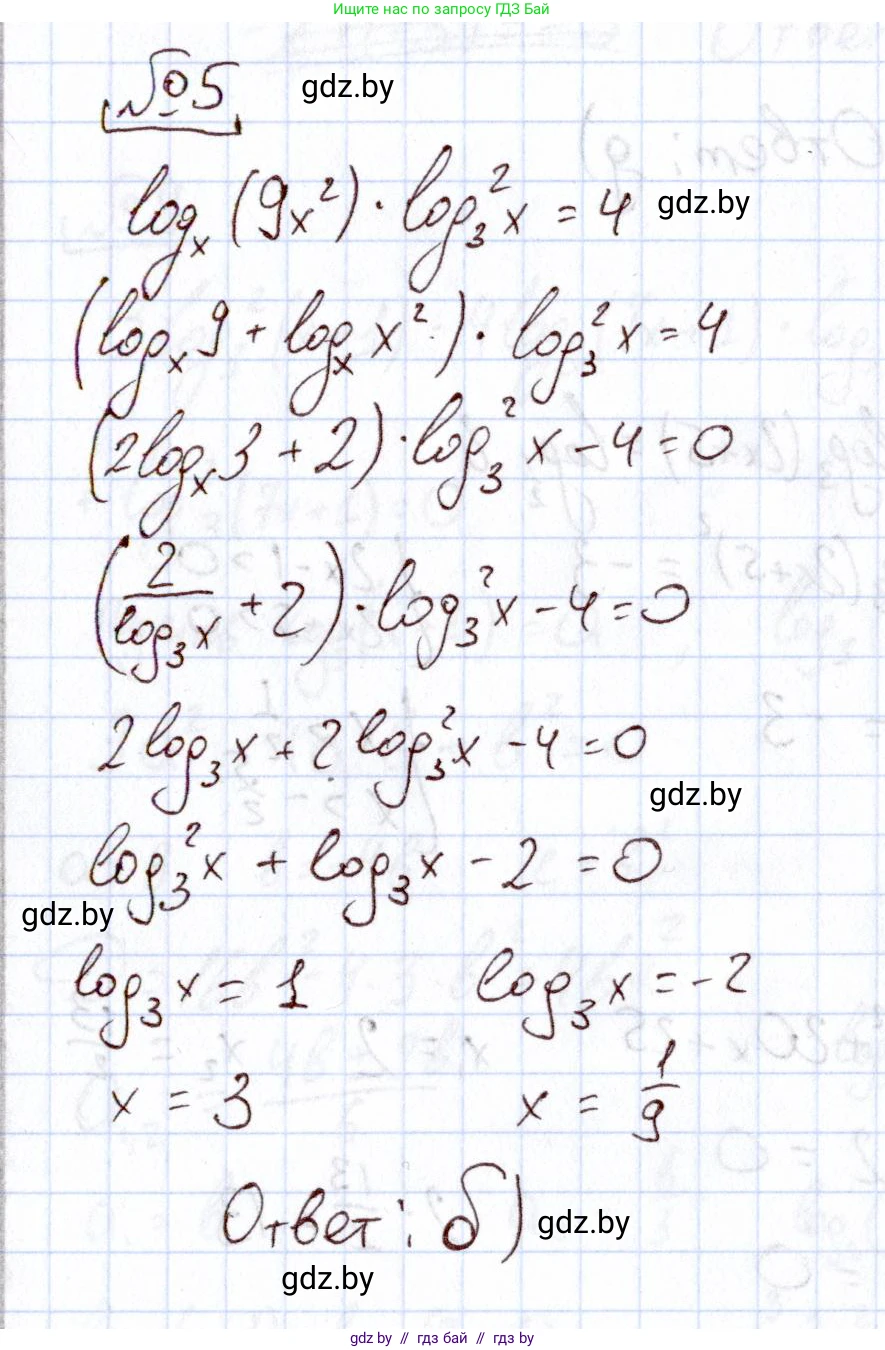 Ищите нас по запросу ГДЗ Бай
№5 gdz.by
log_x (9x²) · log₃² x = 4 gdz.by
(log_x 9 + log_x x²) · log₃² x = 4
(2log_x 3 + 2) · log₃² x - 4 = 0
(2/log₃ x + 2) · log₃² x - 4 = 0
2log₃ x + 2log₃² x - 4 = 0
gdz.by
log₃² x + log₃ x - 2 = 0
gdz.by
log₃ x = 1 log₃ x = -2
x = 3 x = 1/9
Ответ: б) gdz.by
gdz.by
gdz.by // гдз бай // гдз by